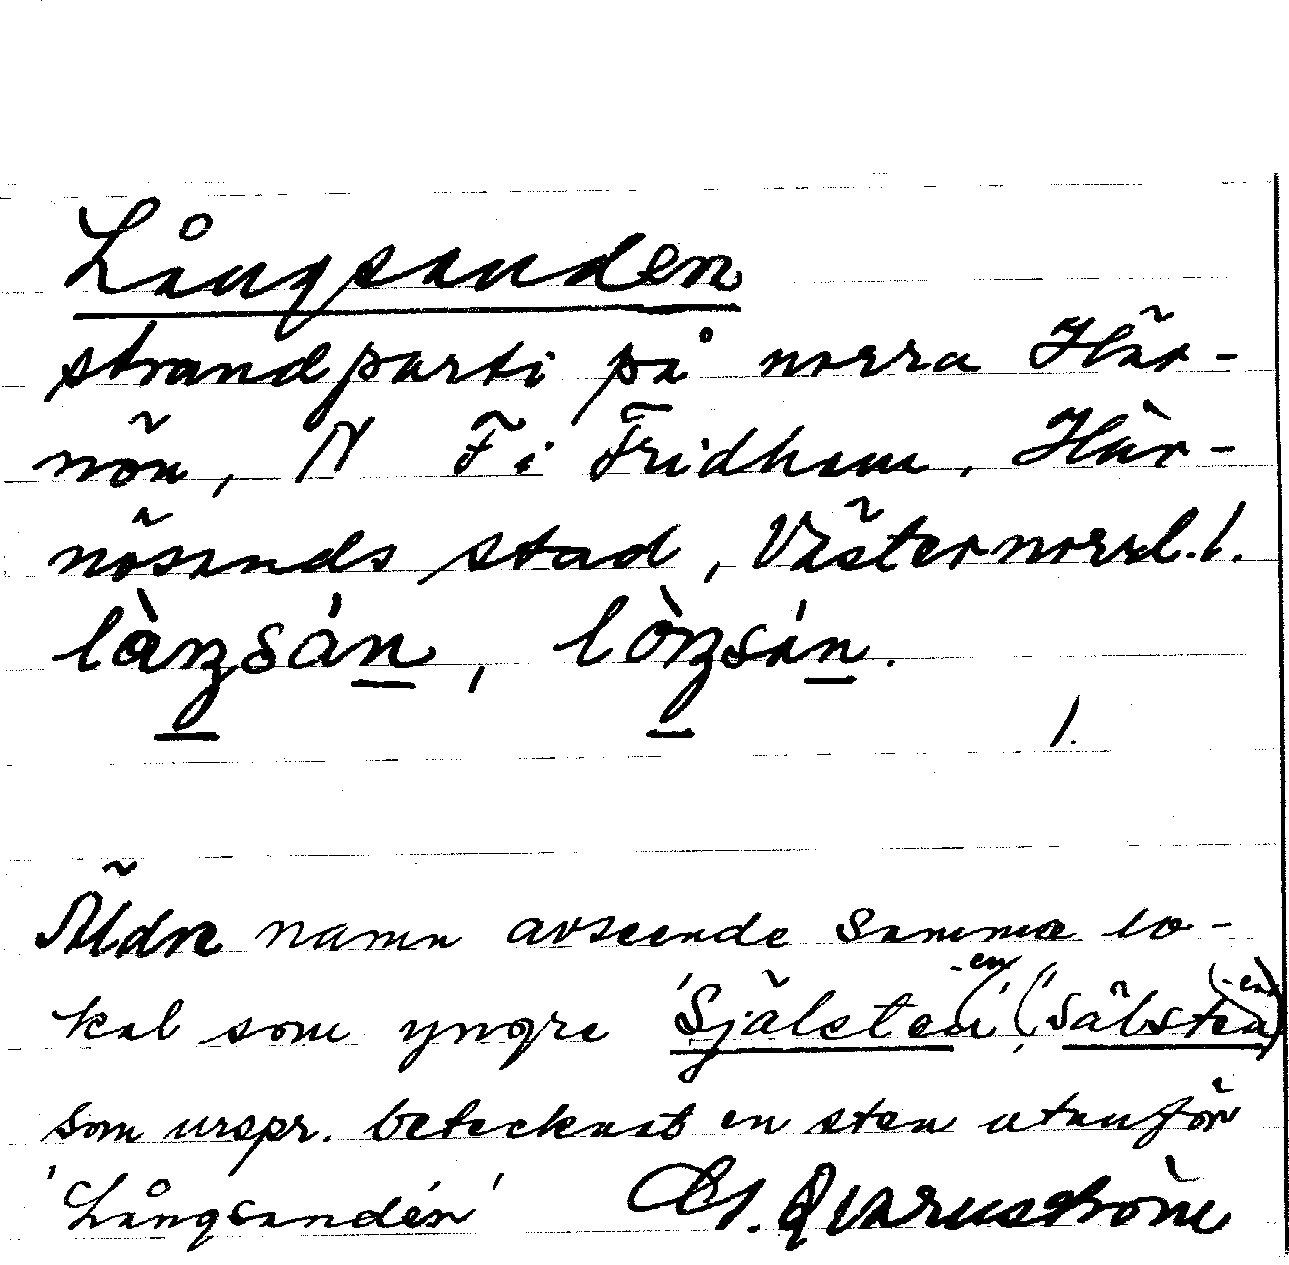 Långsanden
strandparti på norra Här-
nön, N Fi Fridhem, Här-
nösands stad, Västernorrl. l.
làŋsán, lòŋsán.
1.
Äldre namn avseende samma lo-
kal som yngre 'Själsten', ('Sälsten)
som urspr. betecknat en sten utanför
'Långsanden' G. Qvarnström